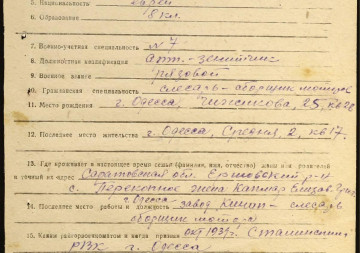 5. Национальность еврей
6. Образование 8 кл.
7. Военно-учетная специальность №7
8. Должностная квалификация арт.-зенитчик
9. Военное звание рядовой
10. Гражданская специальность слесарь-сборщик моторов
11. Место рождения г. Одесса, Чижикова, 25, кв 20
12. Последнее место жительства г. Одесса, Средняя, 2, кв 17.
13. Где проживает в настоящее время семья (фамилия, имя, отчество) жены или родителей
и точный их адрес Саратовская обл. Ершовский р-н
с. Перекопное жена
14. Последнее место работы и должность г. Одесса завод Кинап - слесарь
сборщик
15. Каким райгорвоенкоматом и когда призван окт 1939 г. Сталинским
РВК г. Одесса